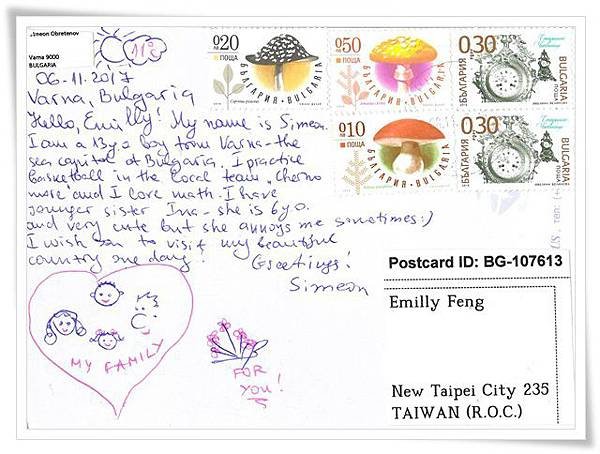 Simeon Obretenov
Varna 9000
BULGARIA
11°C
06.11.2017
Varna, Bulgaria
Hello, Emilly! My name is Simeon.
I am a y.o boy from Varna - the
sea capital of Bulgaria. I practice
basketball in the local team "Cherno
more" and I love math. I have
younger sister Ina - she is 6 y.o.
and very cute but she annoys me sometimes :)
I wish you to visit my beautiful
country one day! Greetings!
Simeon
MY FAMILY
FOR
YOU!
0.20
ПОЩА
БЪЛГАРИЯ • BULGARIA
0.50
ПОЩА
БЪЛГАРИЯ • BULGARIA
0.30
БЪЛГАРИЯ
BULGARIA
поща
0.10
ПОЩА
БЪЛГАРИЯ • BULGARIA
0.30
БЪЛГАРИЯ
BULGARIA
поща
Postcard ID: BG-107613
Emilly Feng
New Taipei City 235
TAIWAN (R.O.C.)